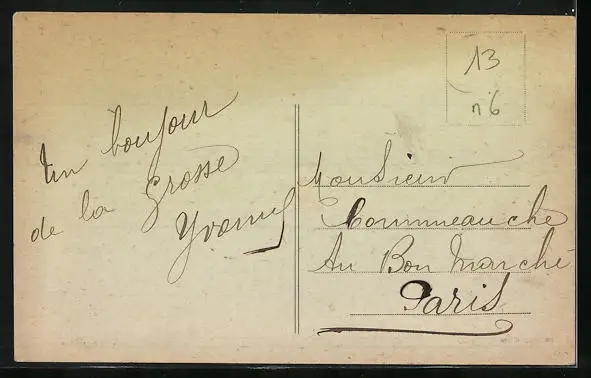 Un bonjour
de la Grosse
Yvonne
13
n 6
Monsieur
Au Bon Marché
Paris